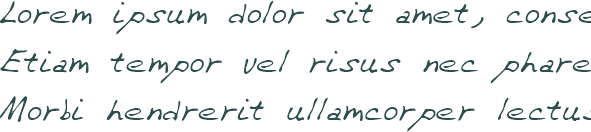 Lorem ipsum dolor sit amet, conse
Etiam tempor vel risus nec phare
Morbi hendrerit ullamcorper lectus